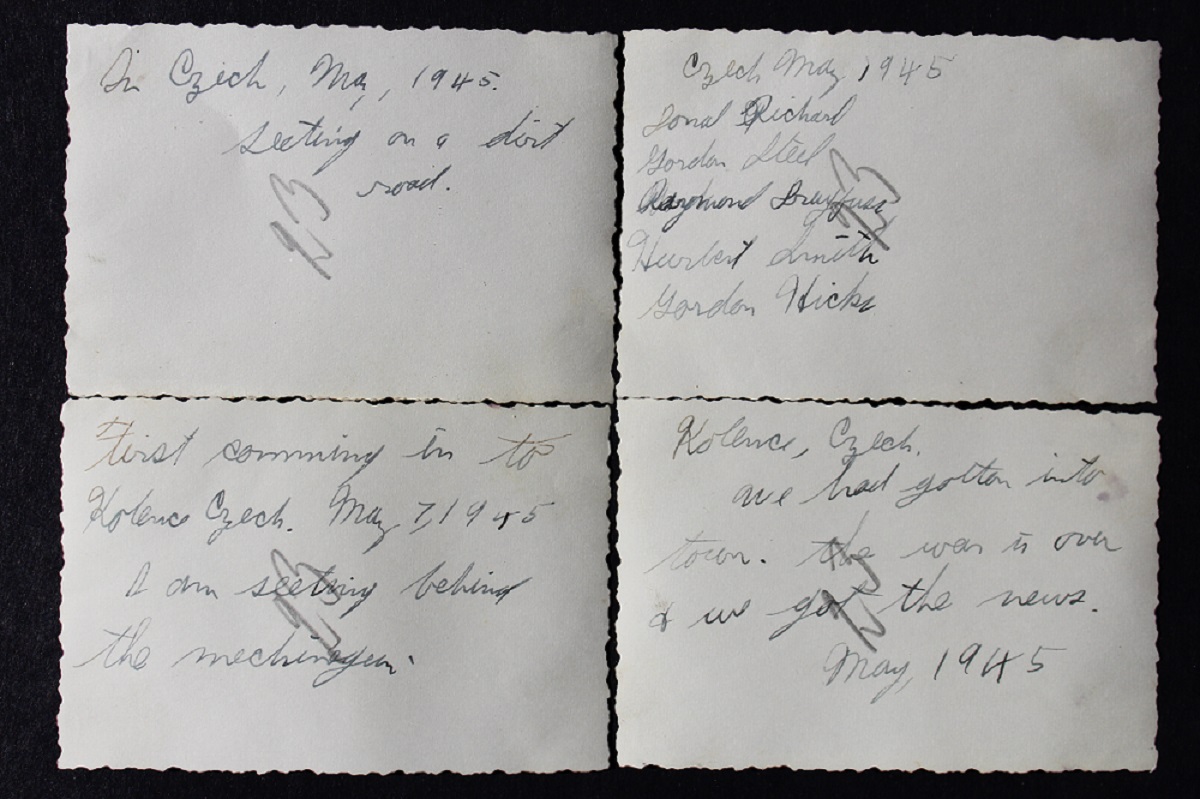 In Czech, May, 1945.
seeting on a dirt
road.
23
Czech May, 1945
Richard
Gordon Steel
Raymond Dreyfuss
23
Hurbert Smith
Gordon Hicks
First comming in to
Kolence Czech. May 7, 1945
I am seeting behind
23
the mechinegun.
Kolence, Czech.
we had gotton into
town. the war is over
& we got the news.
23
May, 1945